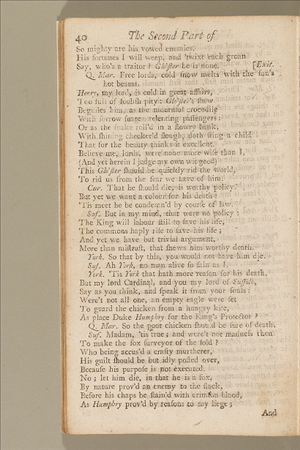 40 The Second Part of
So mighty are his vowed enemies.
His fortunes I will weep, and 'twixt each groan
Say, who's a traitor? Glo'ster he is none. [Exit.
Q. Mar. Free lords, cold snow melts with the sun's
hot beams.
Henry, my lord, is cold in great affairs,
Too full of foolish pity: Glo'ster's show
Beguiles him, as the mournful crocodile
With sorrow snares relenting passengers:
Or as the snake roll'd in a flow'ry bank,
With shining checker'd slough, doth sting a child
That for the beauty thinks it excellent.
Believe me, lords, were none more wise than I,
(And yet herein I judge my own wit good)
This Glo'ster should be quickly rid the world,
To rid us from the fear we have of him.
Car. That he should die, is worthy policy.
But yet we want a colour for his death:
'Tis meet he be condemn'd by course of law.
Suf. But in my mind, that were no policy:
The King will labour still to save his life,
The commons haply rise to save his life;
And yet we have but trivial argument,
More than mistrust, that shews him worthy death.
York. So that by this, you would not have him die.
Suf. Ah York, no man alive so fain as I.
York. 'Tis York that hath more reason for his death.
But my lord Cardinal, and you my lord of Suffolk,
Say as you think, and speak it from your souls:
Were't not all one, an empty eagle were set
To guard the chicken from a hungry kite,
As place Duke Humphry for the King's Protector?
Q. Mar. So the poor chicken should be sure of death.
Suf. Madam, 'tis true; and were't not madness then
To make the fox surveyor of the fold?
Who being accus'd a crafty murtherer,
His guilt should be but idly posted over,
Because his purpose is not executed.
No; let him die, in that he is a fox,
By nature prov'd an enemy to the flock,
Before his chaps be stain'd with crimson blood,
As Humphry prov'd by reasons to my liege;
And